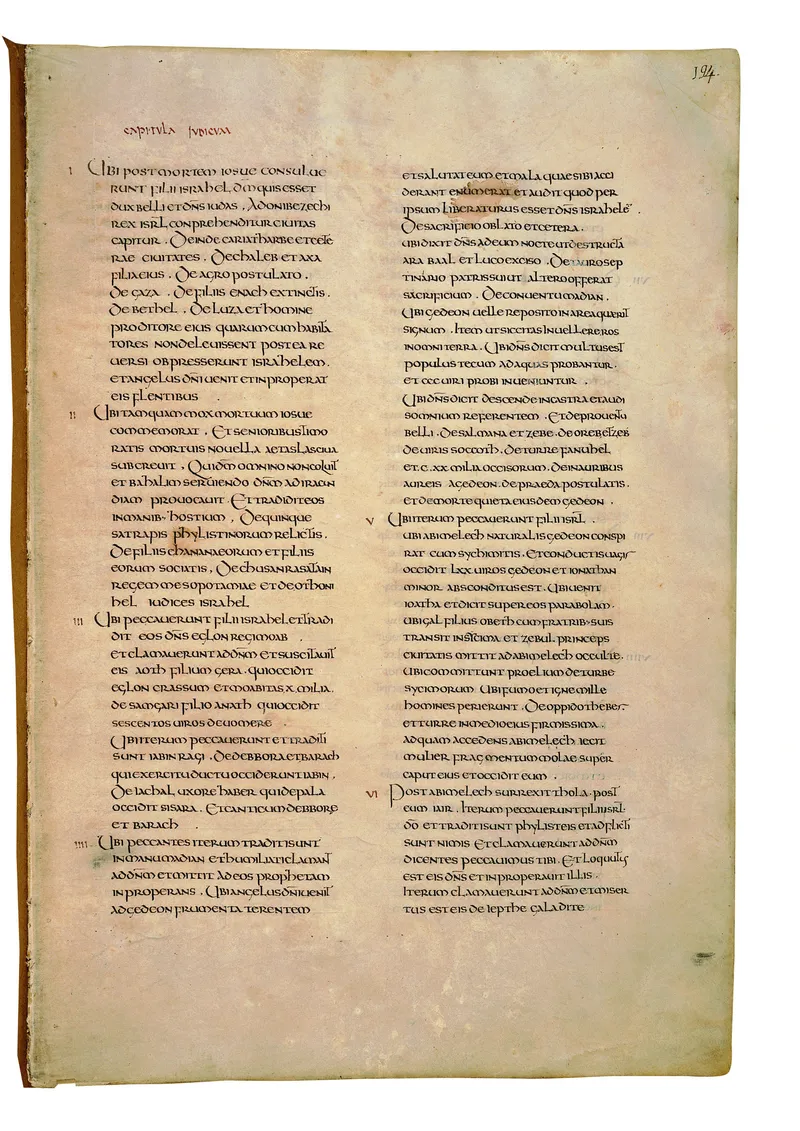 194.
CAPITULA IUDICUM
I UBI POST MORTEM IOSUE CONSULUE
RUNT FILII ISRAHEL DNM QUIS ESSET
DUX BELLI ET DNS IUDAS . ADONIBEZECHI
REX ISRL CONPREHENDITUR CIUITAS
CAPITUR . DEINDE CARIATHARBE ET CETE
RAE CIUITATES . DE CHALEB ET AXA
FILIA EIUS . DE AGRO POSTULATO .
DE GAZA . DE FILIIS ENACH EXTINCTIS .
DE BETHEL . DE LUZA ET HOMINE
PRODITORE EIUS QUARUM CUM HABITA
TORES NON DELEUISSENT POSTEA RE
UERSI OBPRESSERUNT ISRAHELEM .
ET ANGELUS DNI UENIT ET INPROPERAT
EIS FLENTIBUS .
II UBI TAMQUAM MOX MORTUUM IOSUE
COMMEMORAT . ET SENIORIBUS TIMO
RATIS MORTUIS NOUELLA AETAS LASCIUA
SUBCREUIT . QUI DM OMNINO NON COLUIT
ET BAHALIM SERUIENDO DNM AD IRACUN
DIAM PROUOCAUIT . ET TRADIDIT EOS
IN MANIB· HOSTIUM . DE QUINQUE
SATRAPIS PHYLISTINORUM RELICTIS .
DE FILIIS CHANANAEORUM ET FILIIS
EORUM SOCIATIS . DE CHUSANRASATAIN
REGEM MESOPOTAMIAE ET DE OTHONI
HEL IUDICES ISRAHEL
III UBI PECCAUERUNT FILII ISRAHEL ET TRADI
DIT EOS DNS EGLON REGI MOAB .
ET CLAMAUERUNT AD DNM ET SUSCITAUIT
EIS AOTH FILIUM GERA . QUI OCCIDIT
EGLON CRASSUM ET MOABITAS X. MILIA .
DE SAMGARI FILIO ANATH QUI OCCIDIT
SESCENTOS UIROS DE UOMERE .
UBI ITERUM PECCAUERUNT ET TRADITI
SUNT IABIN RAGI . DE DEBBORA ET BARACH
QUI EXERCITU DUCTU OCCIDERUNT IABIN .
DE IACHAL UXORE HABER QUI DE PALA
OCCIDIT SISARA . ET CANTICUM DEBBORE
ET BARACH .
IIII UBI PECCANTES ITERUM TRADITI SUNT
IN MANU MADIAN ET HUMILIATI CLAMANT
AD DNM ET MITTIT AD EOS PROPHETAM
INPROPERANS . UBI ANGELUS DNI UENIT
AD GEDEON FRUMENTA TERENTEM
ET SALUTAT EUM ET MALA QUAE SIBI ACCI
DERANT ENUMERAT ET AUDIT QUOD PER
IPSUM LIBERATURUS ESSET DNS ISRAHELE .
DE SACRIFICIO OBLATO ET CETERA .
UBI DIXIT DNS AD EUM NOCTE UT DESTRUCTA
ARA BAAL ET LUCO EXCISO . DE TAURO SEP
TINARIO PATRIS SUI UT ALTERO OFFERAT
SACRIFICIUM . DE CONUENTU MADIAN .
UBI GEDEON UELLE REPOSITO IN AREA QUERIT
SIGNUM . ITEM UT SICCITAS IN UELLERE ROS
IN OMNI TERRA . UBI DNS DICIT MULTUS EST
POPULUS TECUM AD AQUAS PROBANTUR .
ET CCC UIRI PROBI INUENIUNTUR .
UBI DNS DICIT DESCENDE IN CASTRA ET AUDI
SOMNIUM REFERENTEM . ET DE PROUENTU
BELLI . DE SALMANA ET ZEBE . DE OREB ET ZEB
DE UIRIS SOCCOTH . DE TURRE FANUHEL
ET . C . XX MILIA OCCISORUM . DE INAURIBUS
AUREIS A GEDEON . DE PRAEDA POSTULATIS .
ET DE MORTE QUIETA EIUSDEM GEDEON .
V UBI ITERUM PECCAUERUNT FILII ISRL .
UBI ABIMELECH NATURALIS GEDEON CONSPI
RAT CUM SYCHIMITIS . ET CONDUCTIS UAGIS
OCCIDIT LXX. UIROS GEDEON ET IONATHAN
MINOR ABSCONDITUS EST . UBI UENIT
IOATHA ET DICIT SUPER EOS PARABOLAM .
UBI GAL FILIUS OBETH CUM FRATRIB· SUIS
TRANSIT IN SICIMA ET ZEBUL PRINCEPS
CIUITATIS MITTIT AD ABIMELECH OCCULTE .
UBI COMMITTUNT PROELIUM DE TURBE
SYCIMORUM UBI FUMO ET IGNE MILLE
HOMINES PERIERUNT . DE OPPIDO THEBES
ET TURRE IN MEDIO EIUS FIRMISSIMA .
AD QUAM ACCEDENS ABIMELECH IECIT
MULIER FRAGMENTUM MOLAE SUPER
CAPUT EIUS ET OCCIDIT EUM .
VI POST ABIMELECH SURREXIT THOLA . POST
EUM IAIR . ITERUM PECCAUERUNT FILII ISRL .
DO ET TRADITI SUNT PHYLISTEIS ET ADFLICTI
SUNT NIMIS ET CLAMAUERUNT AD DNM
DICENTES PECCAUIMUS TIBI . ET LOQUUTUS
EST EIS DNS ET INPROPERAUIT ILLIS .
ITERUM CLAMAUERUNT AD DNM ET MISER
TUS EST EIS DE IEPTHE GALADITE